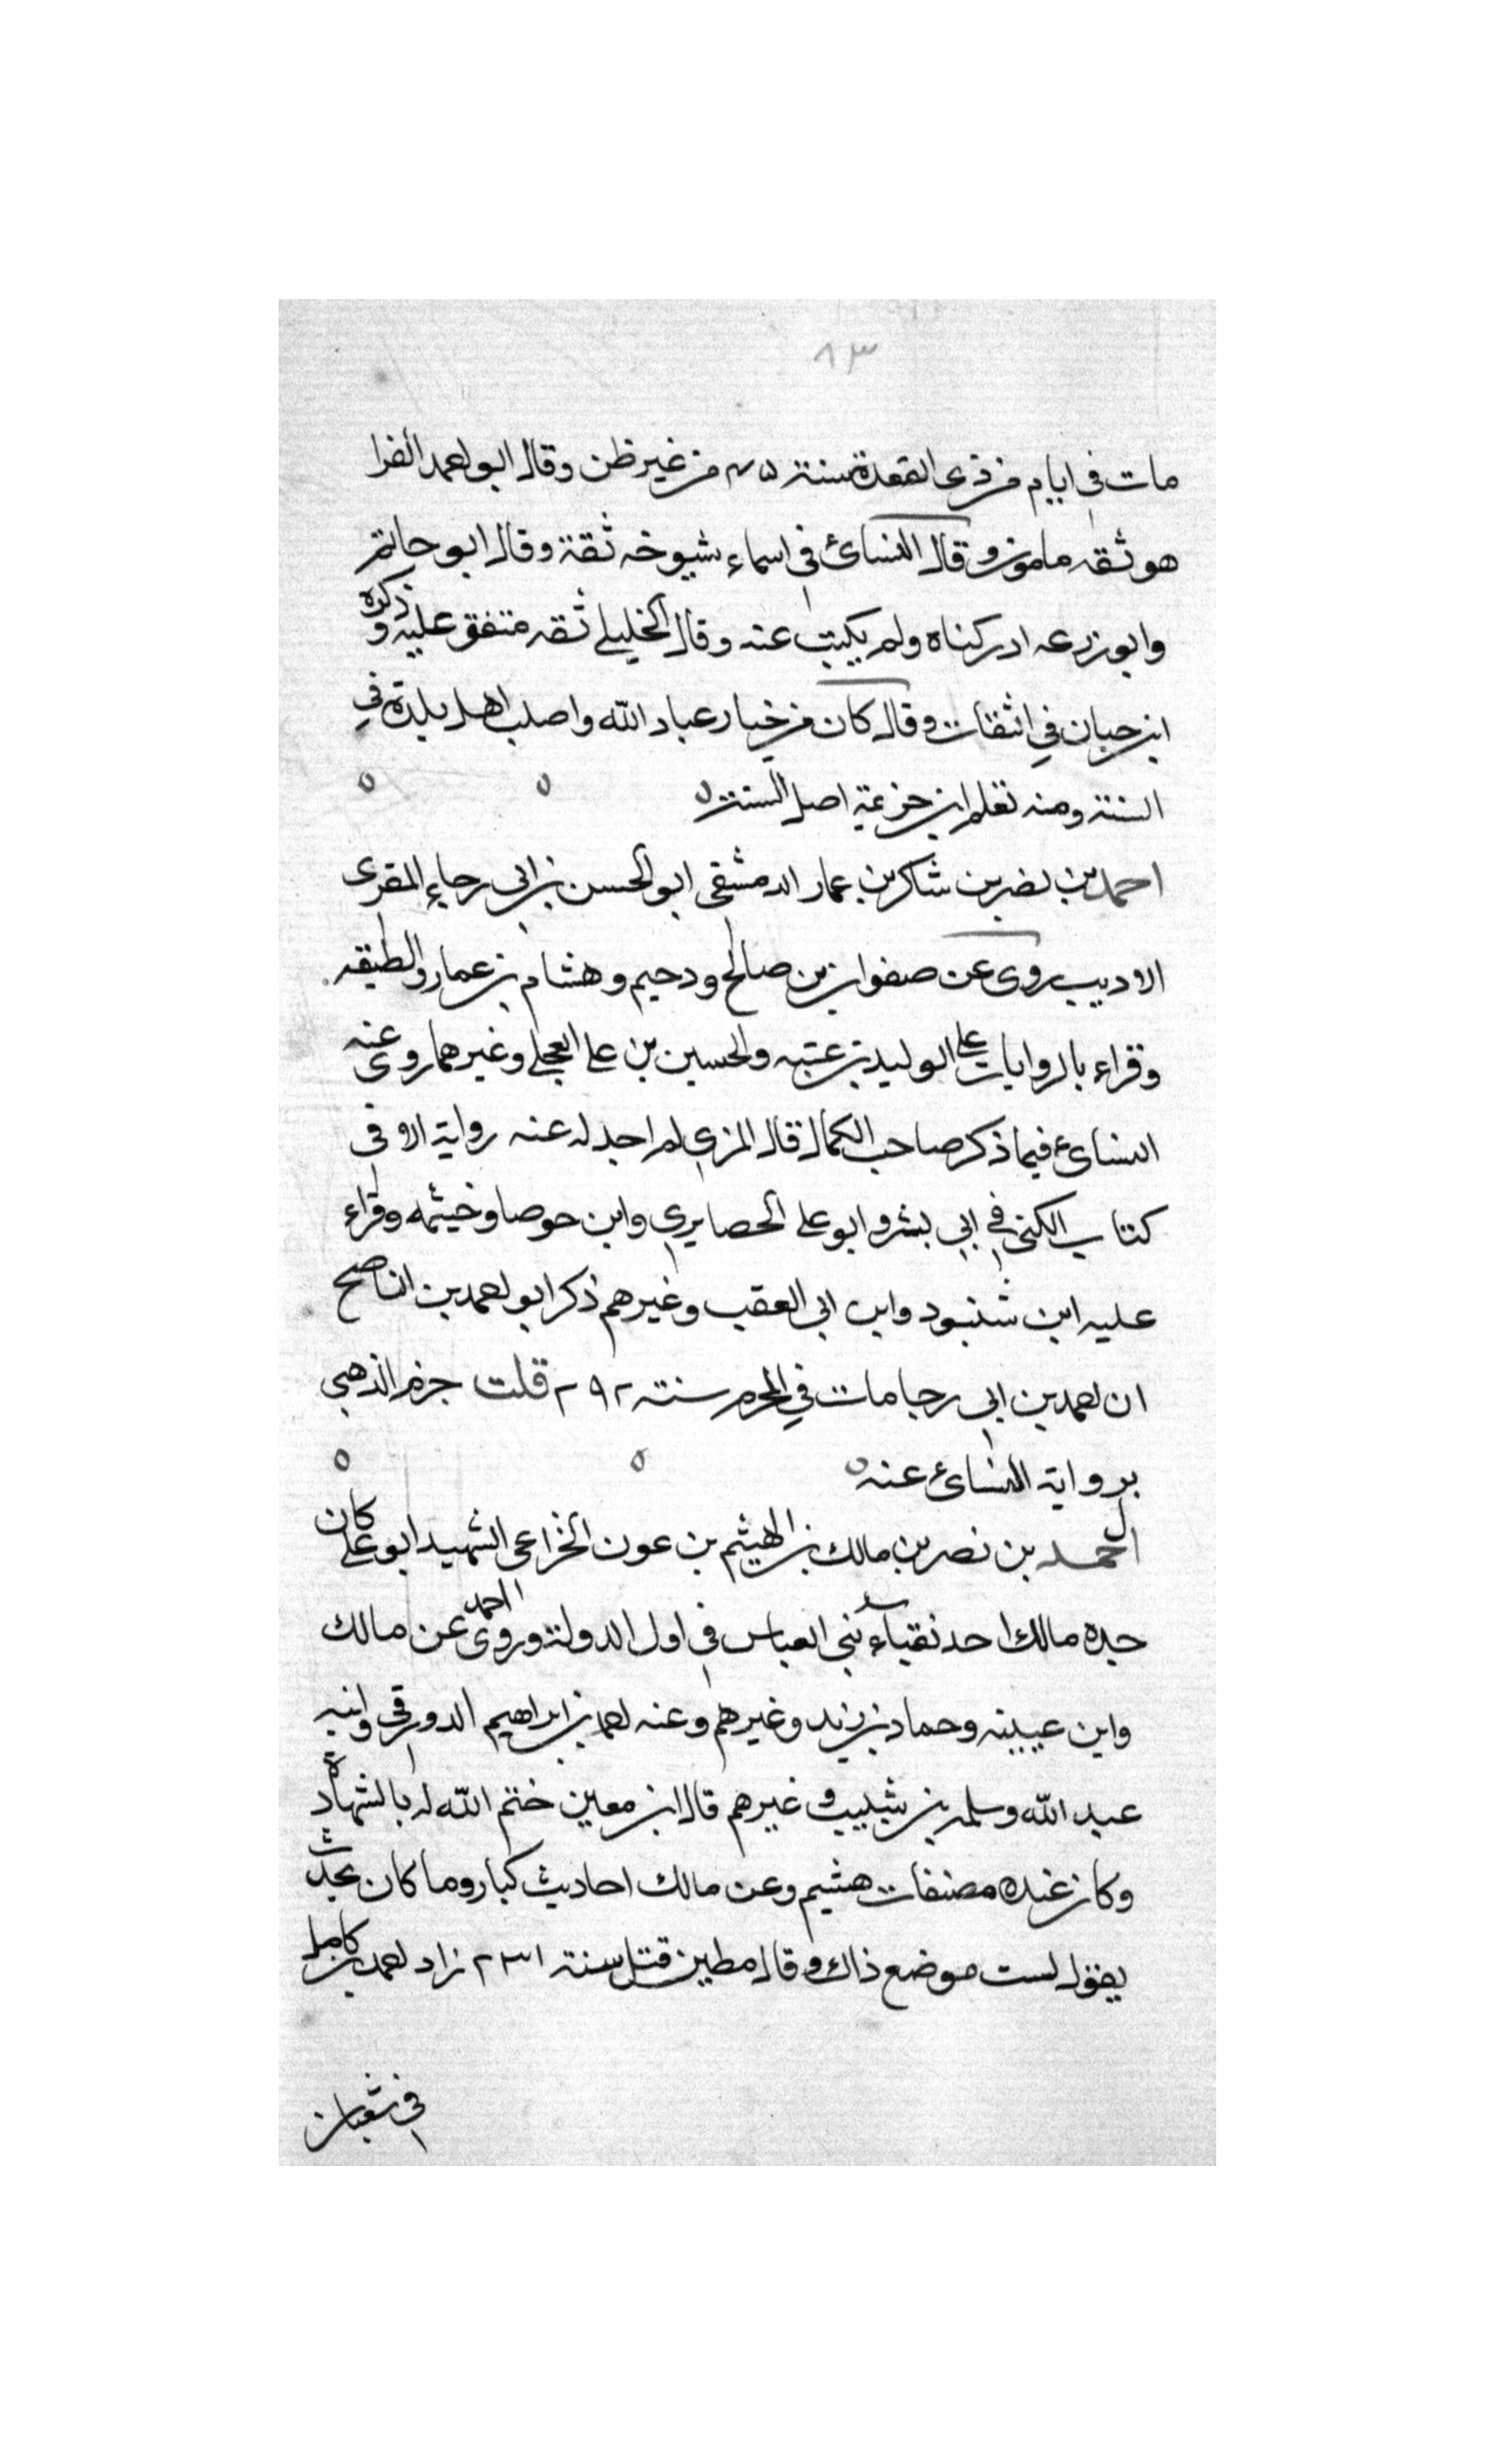 ٨٣
مات في ايام من ذى القعدة سنة ٤٥ من غير ظن وقال ابو احمد الفرا
هو ثقه مامون وقال النسائ في اسماء شيوخه ثقة وقال ابو حاتم
وابو زرعه ادركناه ولم يكتب عنه وقال الخليلي ثقه متفق عليه وذكره
ابن حبان في الثقات وقال كان من خيار عباد الله واصلب اهل بلدة في
السنة ومنه تعلم ابن خزيمة اصل السنة
احمد بن نضر بن شاكر بن عمار الدمشقى ابو الحسن بن ابى رجاء المقرى
الاديب روى عن صفوان بن صالح ودحيم وهشام بن عمار والطبقه
وقراء بالروايات على الوليد بن عتبه والحسين بن على العجلي وغيرهما روى عنه
النسائ فيما ذكر صاحب الكمال قال المزي لم اجد له عنه رواية الا في
كتاب الكنى في ابي بشر وابو على الحصايري وابن حوصا وخيثمه وقراء
عليه ابن شنبود وابن ابى العقب وغيرهم ذكر ابو احمد بن الناصح
ان احمد بن ابي رجا مات في المحرم سنة ٢٩٢ قلت جزم الذهبى
برواية النسائ عنه
احمد بن نصر بن مالك بن الهيثم بن عون الخزاعى الشهيد ابو على كان
جده مالك احد نقباء بني العباس في اول الدولة وروى احمد عن مالك
وابن عيينه وحماد بن زيد وغيرهم وعنه احمد بن ابراهيم الدورقي وابنه
عبد الله وسلمه بن شبيب وغيرهم قال ابن معين ختم الله له بالشهادة
وكان عنده مصنفات هشيم وعن مالك احاديث كبار وما كان يحدث
يقول لست موضع ذاك وقال مطين قتل سنة ٢٣١ زاد احمد بن كامل
في شعبان